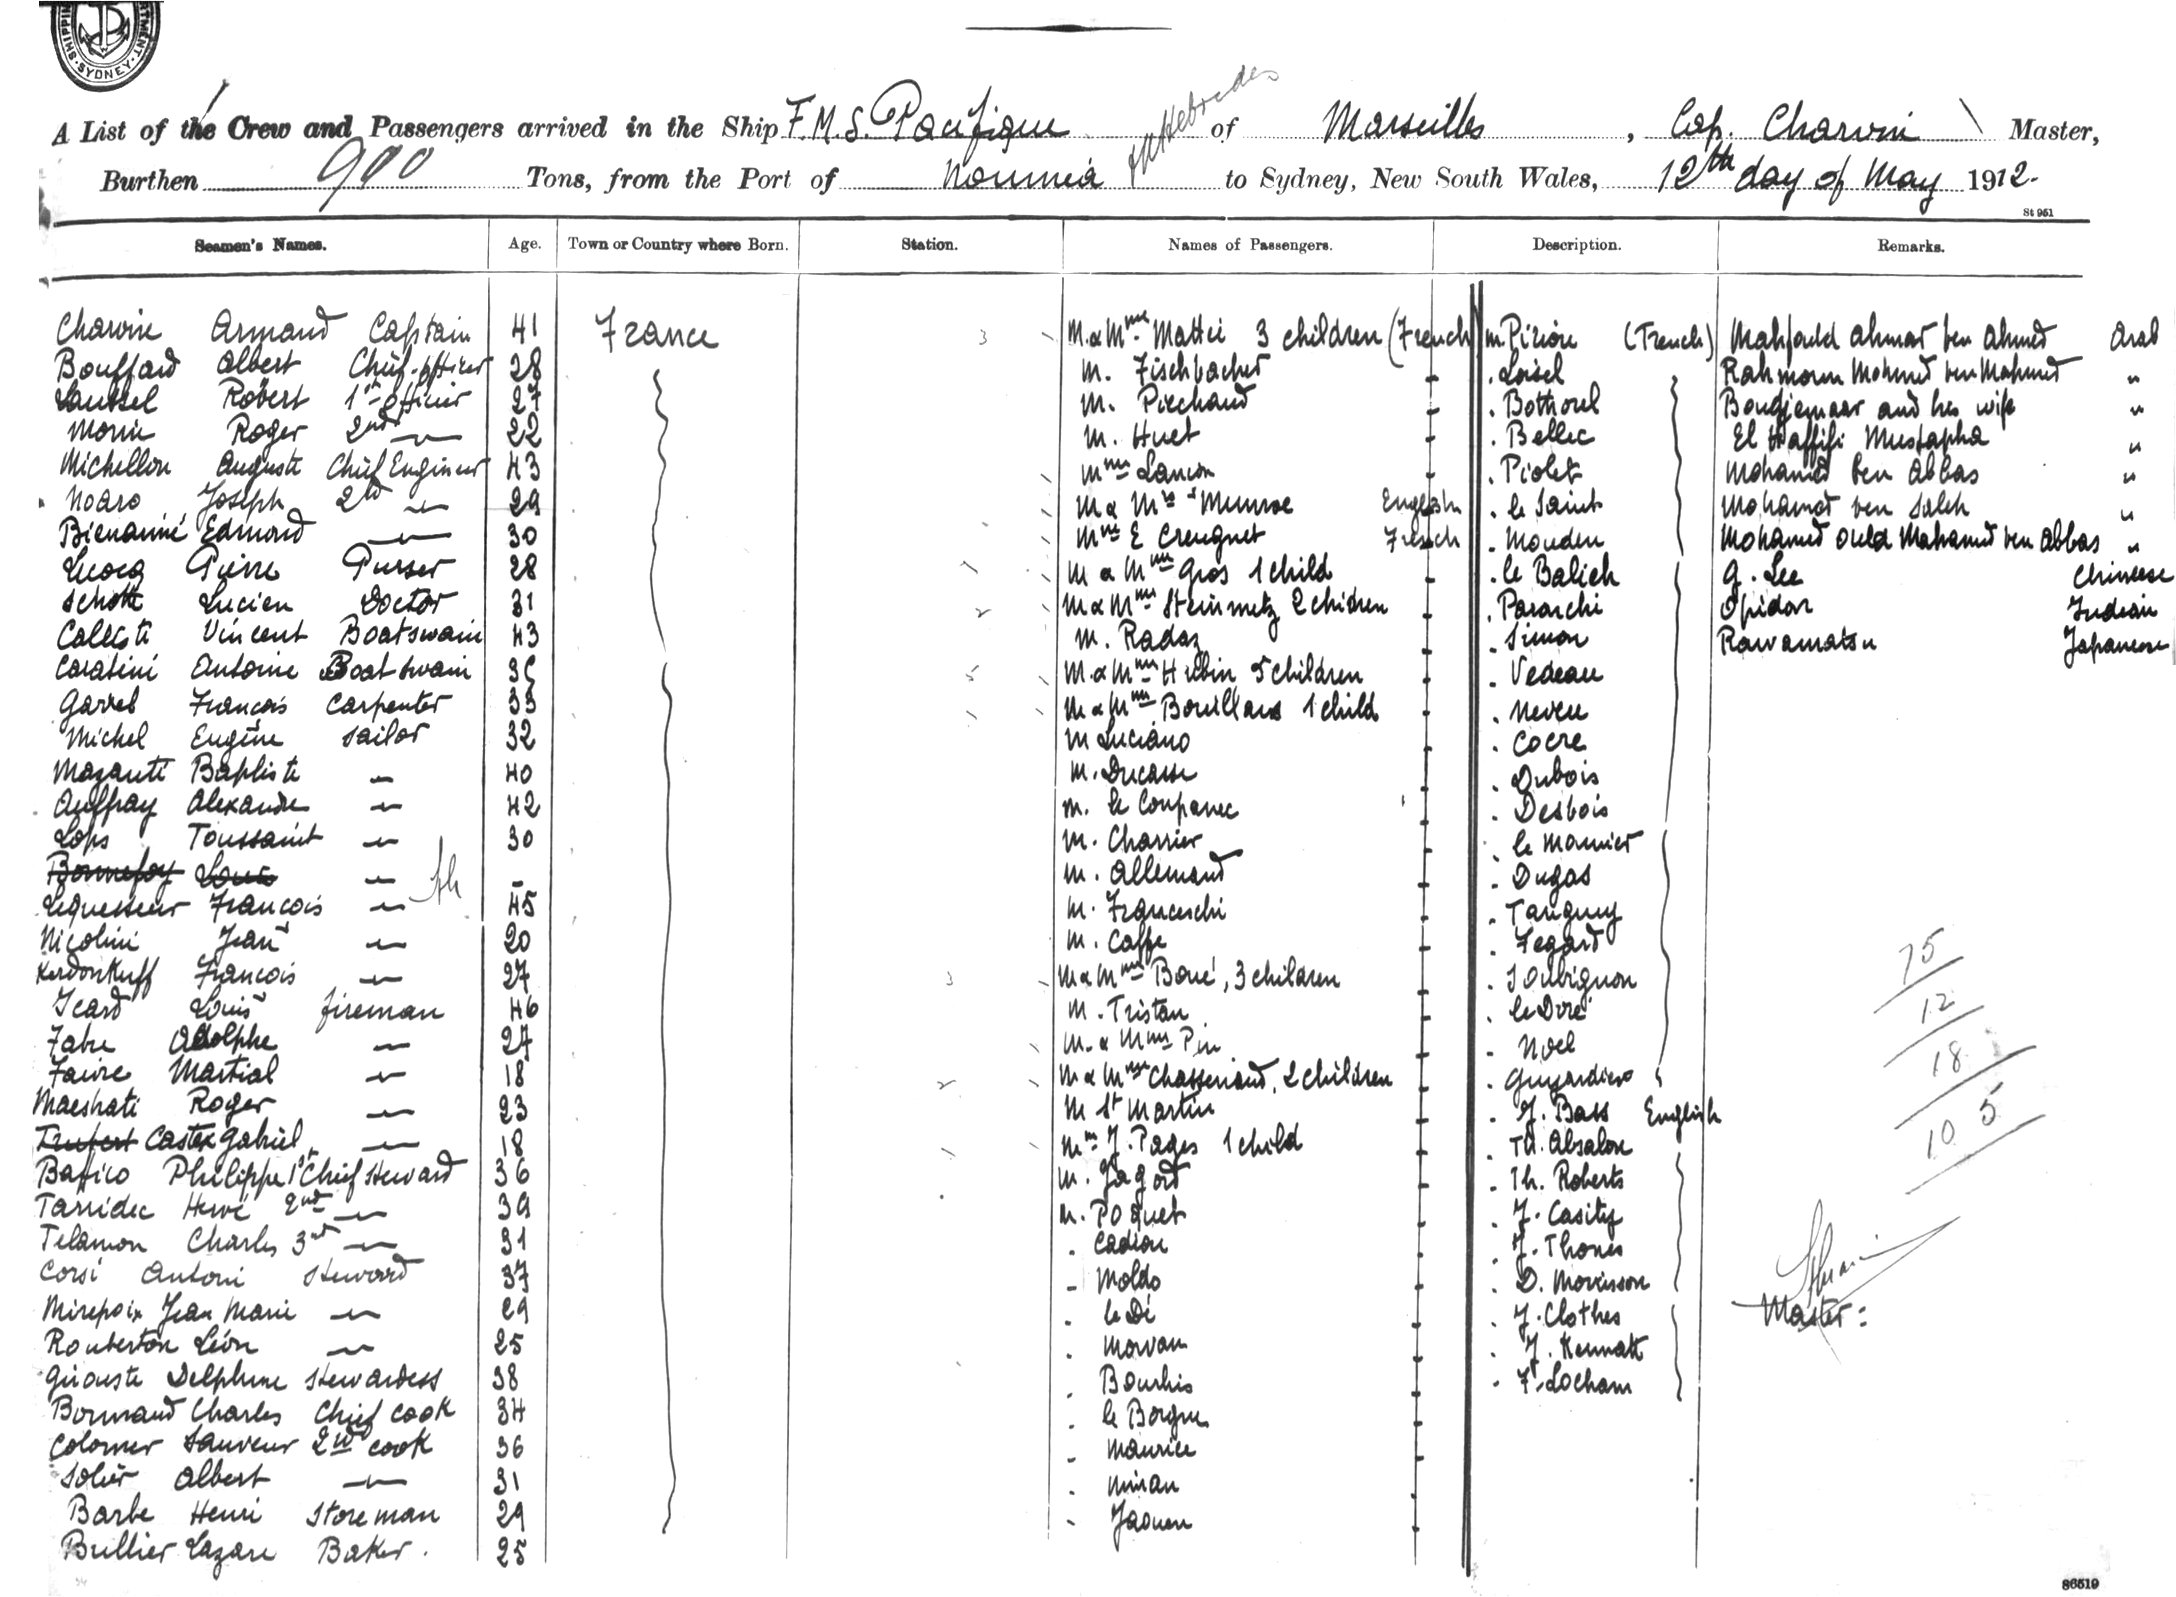 SHIPPING DEPARTMENT SYDNEY
A List of the Crew and Passengers arrived in the Ship F.M.S. Pacifique of Marseilles, Cap. Charvin Master,
Burthen 900 Tons, from the Port of Nouméa & N Hebrides to Sydney, New South Wales, 12th day of May 1912.
St 951
Seamen's Names. Age. Town or Country where Born. Station. Names of Passengers. Description. Remarks.
Charvin Armand Captain 41 France 3 M. & Mme Mattei 3 children (French) M. Pirion (French) Ahmar ben Ahmed Arab
Bouffard Albert Chief officer 28 M. Fischbacher - . Loisel ben Mohmed "
Robert 1st officer 27 M. Piechaud - . Bothorel Boudjemaar and his wife "
Morin Roger 2nd 〃 22 M. Huet - . Bellec El Haffifi Mustapha "
Michellon Auguste Chief Engineer 43 Mme Lancon - . Piolet Mohamed ben Abbas "
Noaro Joseph 2nd 〃 29 M & Mrs Munroe English . le Saint Mohamed ben Saleh "
Bienaimé Edmond 〃 30 Mme E Creugnet French . Mouden Mohamed ould Mohamed ben Abbas "
Lucocq Pierre Purser 28 M & Mme Gros 1 child - . le Balich G. Lee Chinese
Schott Lucien Doctor 31 M & Mme Steinmetz 2 children - . Pararchi Opidar Indian
Vincent Boatswain 43 M. Radaz - . Simon Rawamatsu Japanese
Caratini Antoine Boatswain 35 M. & Mme Hubin 5 children - . Vedeau
Garrel François Carpenter 33 M & Mme Bouillaus 1 child - . Neveu
Michel Eugène Sailor 32 M Luciano - . Cocre
Mazanti Baptiste 〃 40 M. Ducasse - . Dubois
Auffray Alexandre 〃 42 M. le Coupanec - . Desbois
Lops Toussaint 〃 30 M. Charrier - . le Mounier
Bonnefoy Louis 〃 - M. Allemand - . Dugas
Lequesseur François 〃 45 M. Franceschi - . Tanguy
Nicolini Jean 〃 20 M. Caffe - . Fegard
Kerdonkuff François 〃 27 3 M & Mme Boué, 3 children - . Joubignon
Icard Louis fireman 46 M. Tristan - . le Doré
Fabre Adolphe 〃 27 M. & Mme Pin - . Noel
Faivre Martial 〃 18 2 M & Mme Chasseniaud, 2 children - . Guyardiere
Maestrati Roger 〃 23 M St Martin - . J. Bass English
Trufert Castex Gabriel 〃 18 Mme J. Pages 1 child - . Th. Absalon
Bafico Philippe 1st Chief Steward 36 M. Jagord - . Th. Roberts
Tarridec Hervé 2nd 〃 39 M. Poquet - . J. Casity
Telamon Charles 3rd 〃 31 . Cadiou - . J. Thones
Corsi Antoni Steward 37 - Moldo - . D. Morrisson
Mirepoix Jean Marie 〃 29 . le Dé - . J. Clothes
Rouberton Léon 〃 25 . Morvan - . J. Kennatt
Giouste Delphine Stewardess 38 . Bourhis - . F. Locham
Bonnaud Charles Chief cook 34 . le Borgne -
Colomer Sauveur 2nd cook 36 . Maurice -
Solier Albert 〃 31 . Minan -
Barbe Henri Storeman 29 - Jaouen -
Bullier Lazare Baker. 25
75
12
18
10 5
Master:
86519